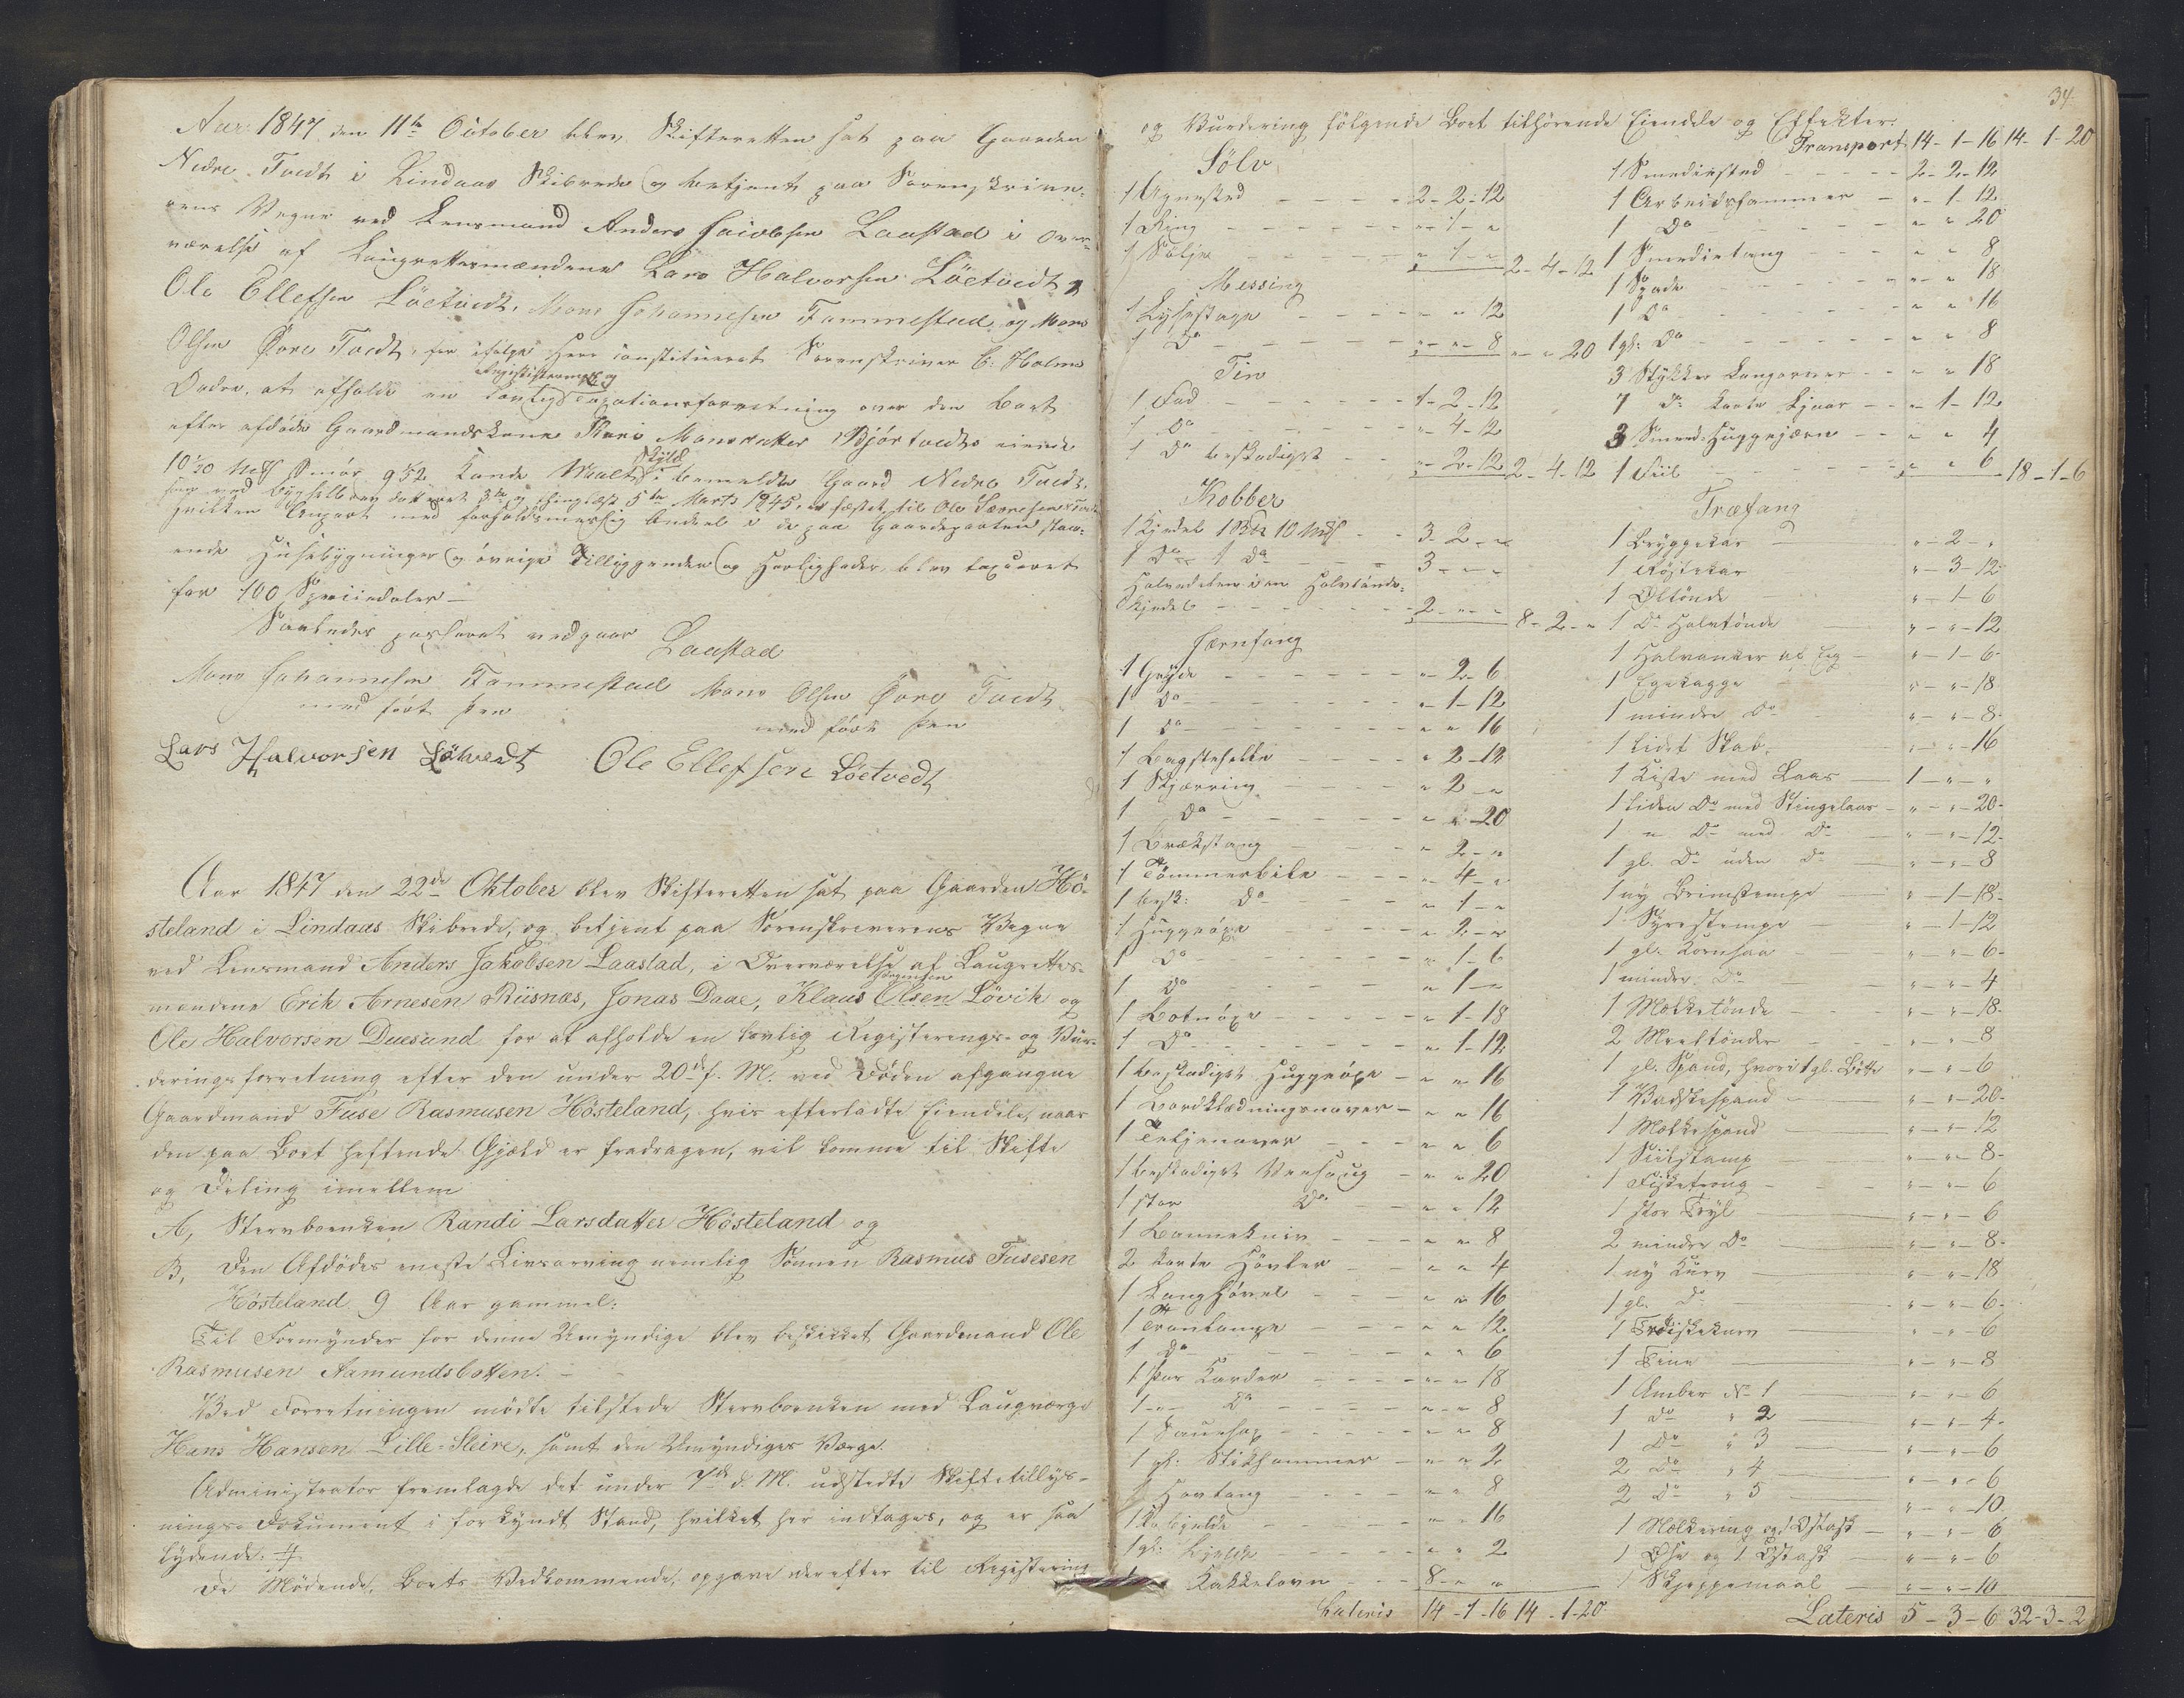 Aar 1847 den 11te October blev Skifteretten sat paa Gaarden
Nedre Tvedt i Lindaas Skibrede og betjent paa Sorenskrive-
rens Vegne ved Lensmand Anders Jacobsen Laastad i Over-
værelse af Laugrettesmændene Lars Halvorsen Löetvedt,
Ole Ellefsen Löetvedt, Mons Johannesen Fammestad og Mons
Olsen Øvre Tvedt, for ifølge Herr constitueret Sorenskriver C. Holms
Ordre, at afholde en lovlig Registrerings og Taxationsforretning over den Boet
efter afdøde Gaardmandskone Kari Monsdatter Tvedt eiende
10 1/20 Mrk Smør 9 1/2 Kande Malt Skyld i bemeldte Gaard Nedre Tvedt,
som ved Bygselbrev dateret 3de og thinglæst 5te Marts 1845, er fæstet til Ole
hvilken Anpart med forholdsmessig Andeel i de paa Gaardeparten staa-
ende Huusebygninger og øvrige Tilliggender og Herligheder, blev taxeret
for 100 Speciedaler –
Saaledes passeret vedgaar Laastad
Mons Johannesen Fammestad Mons Olsen Øvre Tvedt
med ført Pen med ført Pen
Lars Halvorsen Lötvedt Ole Ellefsen Löetvedt
Aar 1847 den 22de Oktober blev Skifteretten sat paa Gaarden Hö-
steland i Lindaas Skibrede, og betjent paa Sorenskriverens Vegne
ved Lensmand Anders Jakobsen Laastad, i Overværelse af Laugrettes-
mændene Erik Arnesen Riisnæs, Jonas Daae, Klaus Olsen Jörgensen Lövik og
Ole Halvorsen Duesund for at afholde en lovlig Registerings- og Vur-
deringsforretning efter den under 20de f. M. ved Døden afgangne
Gaardmand Fuse Rasmusen Hösteland, hvis efterladte Eiendele, naar
den paa Boet heftende Gjæld er fradragen, vil komme til Skifte
og Deling imellem
A, Stervboenken Randi Larsdatter Hösteland og
B, Den Afdödes eneste Livsarving nemlig Sönnen Rasmus Fusesen
Hösteland 9 Aar gammel.
Til Formynder for denne Umyndige blev beskikket Gaardmand Ole
Rasmusen Aamundsbotten. –
Ved Forretningen mödte tilstede Stervboenken med Laugværge
Hans Hansen Lille-Sleire, samt den Umyndiges Værge.
Administrator fremlagde det under 7de d. M. udstedte Skiftetillys-
nings-Dokument i forkyndt Stand, hvilket her indtages, og er saa
lydende:
De Mödende, Boets Vedkommende, opgave derefter til Registering
34.
og Vurdering følgende Boet tilhørende Eiendele og Effekter:
Sölv
1 Agnested 2-2-12
1 Ring „-1-„
1 Sölje „-1-„ 2-4-12
Messing
1 Lysestage „ „ 12
1 Do „-„-8 „-„ 20
Tin
1 Fad 1-2-12
1 Do „-4-12
1 Do beskadiget „-2-12 2-4-12
Kobber
1 Kjedel 1 Bpd 10 Mrk 3-2-„
1 Do 1 Do 3-„-„
Halvedelen i en Halvtønde-
kjedel 2-„-„ 8-2-„
Jærnfang
1 Gryde „-2-6
1 Do „-1-12
1 Do „ „ 16
1 Bagstehelle „ 2-12
1 Skjærring „ 2-„
1 Do „ „ 20
1 Brækstang „ 2-„
1 Tömmerbile „ 4-„
1 besk: Do „ 1-„
1 Huggeöxe „ 2-„
1 Do „ 1-6
1 Do „ 1-„
1 Botnöxe „ 1-18
1 Do „ 1-12
1 beskadiget Huggeöxe „ „ 16
1 Bordklædningsnaver „ „ 16
1 Teljenaver „ „ 6
1 beskadiget Veesaug „ „ 20
1 stor Do „ „ 12
1 Baandkniv „ „ 8
2 korte Hövler „ „ 4
1 Langhövel „ „ 16
1 Tranlampe „ „ 12
1 Do „ „ 6
1 Par Karder „ „ 18
1 „ Do „ „ 8
1 Sauesax „ „ 8
1 gl: Stikhammer „ „ 2
1 Hovtang „ „ 8
1 „ „ 16
1 gl: „ „ 2
1 Kakkelovn 8-„-„
Lateris 14-1-16 14-1-20
Transport 14-1-16 14-1-20
1 Smediested 2-2-12
1 Arbeidshammer „-1-12
1 Do „ „ 20
1 Smedietang „ „ 8
1 Spade „ „ 18
1 Do „ „ 16
1 gl: Do „ „ 8
3 Stykker Langorver „ „ 18
7 Do korte Ljaar „-1-12
3 Smede-Huggejærn „ „ 4
1 Fiil „ „ 6 18-1-6
Træfang
1 Bryggekar „-2-„
1 Röstekar „-3-12
1 Øltönde „-1-6
1 Do Halvtönde „-„-12
1 Halvanker af Eeg „-1-6
1 Egekagge „-„-18
1 mindre Do „-„-8
1 lidet Skab „-„-16
1 Kiste med Laas 1-„-„
1 liden Do med Stingelaas „-„-20
1 „ Do med Do „-„-12
1 gl. Do uden Do „-„-8
1 ny Brimstampe „-1-18
1 Syrestampe „-1-12
1 gl. Kornsaa „-„-6
1 mindre Do „-„-4
1 Melketönde „-„-18
2 Meeltönder „-„-8
1 gl. Spand, hvori 1 gl. Bötte „-„-6
1 Vadskespand „-„-20
1 Melkespand „-„-12
1 Siilstamp „-„-8
1 Fisketroug „-„-6
1 stor Tryl „-„-6
2 mindre Do „-„-8
1 ny Kurv „-„-18
1 gl. Do „-„-6
1 Trediskekurv „-„-6
1 Tine „-„-8
1 Amber No 1 „-„-6
1 Do „ 2 „-„-4
1 Do „ 3 „-„-6
2 Do „ 4 „-„-6
2 Do „ 5 „-„-10
1 Melkering og 1 Ostask „-„-6
1 Øse og 1 Ostask „-„-6
1 Skjeppemaal „-„-10
Lateris 5-3-6 32-3-2